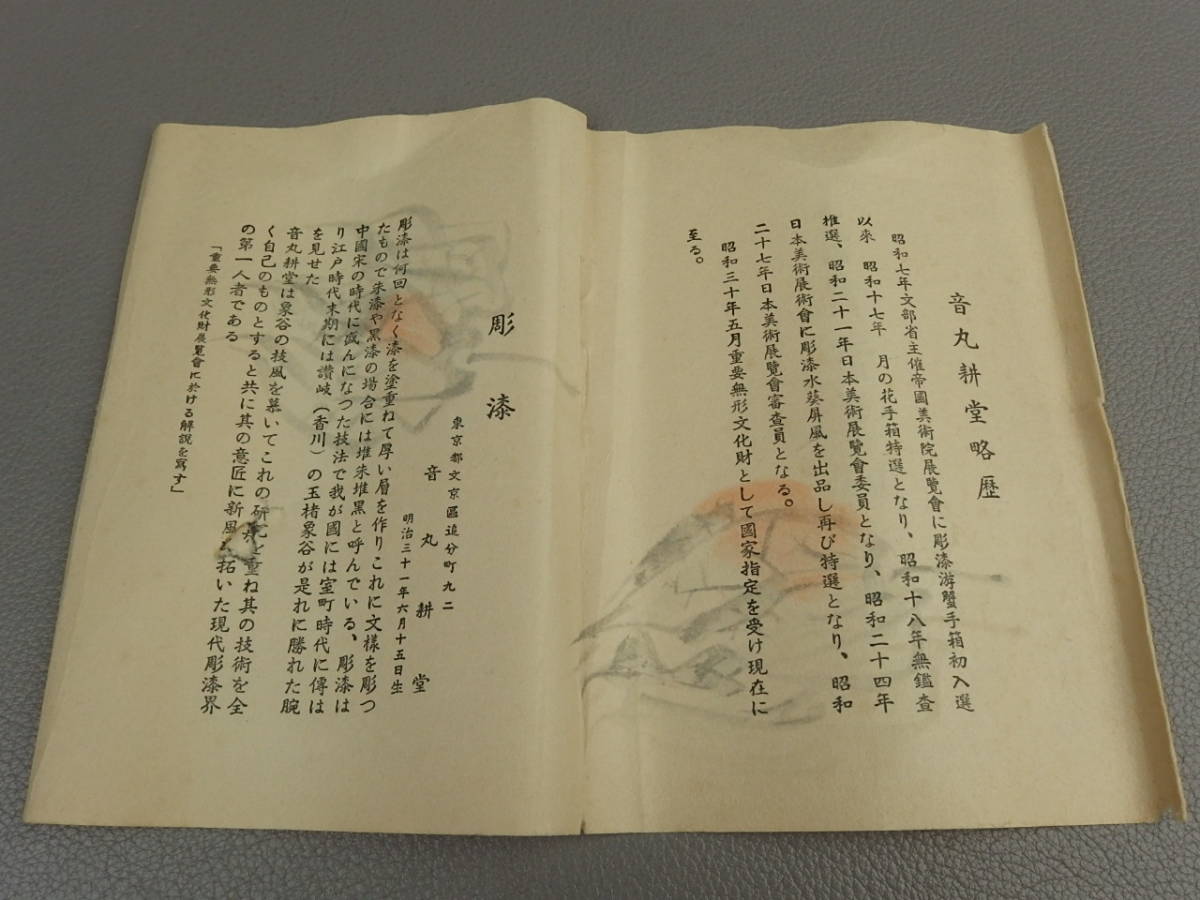 音丸耕堂略歴
昭和七年文部省主催帝國美術院展覽會に彫漆游蟹手箱初入選
以来　昭和十七年　月の花手箱特選となり、昭和十八年無鑑査
推選、昭和二十一年日本美術展覽會委員となり、昭和二十四年
日本美術展術會に彫漆水葵屏風を出品し再び特選となり、昭和
二十七年日本美術展覽會審査員となる。
昭和三十年五月重要無形文化財として國家指定を受け現在に
至る。
彫漆
東京都文京區追分町九二
音丸耕堂
明治三十一年六月十五日生
彫漆は何回となく漆を塗重ねて厚い層を作りこれに文様を彫つ
たもので朱漆や黒漆の場合には堆朱堆黒と呼んでいる、彫漆は
中國宋の時代に盛んになつた技法で我が國には室町時代に傳は
り江戸時代末期には讃岐（香川）の玉楮象谷が是れに勝れた腕
を見せた
音丸耕堂は象谷の技風を慕いてこれの研究を重ね其の技術を全
く自己のものとすると共に其の意匠に新風を拓いた現代彫漆界
の第一人者である
「重要無形文化財展覧會に於ける解説を寫す」